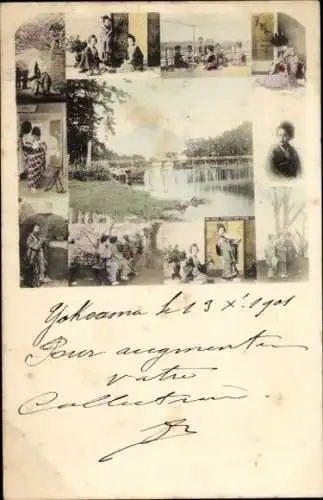 Yokoama le 13 Xe 1901
Pour augmenter
votre
Collection.